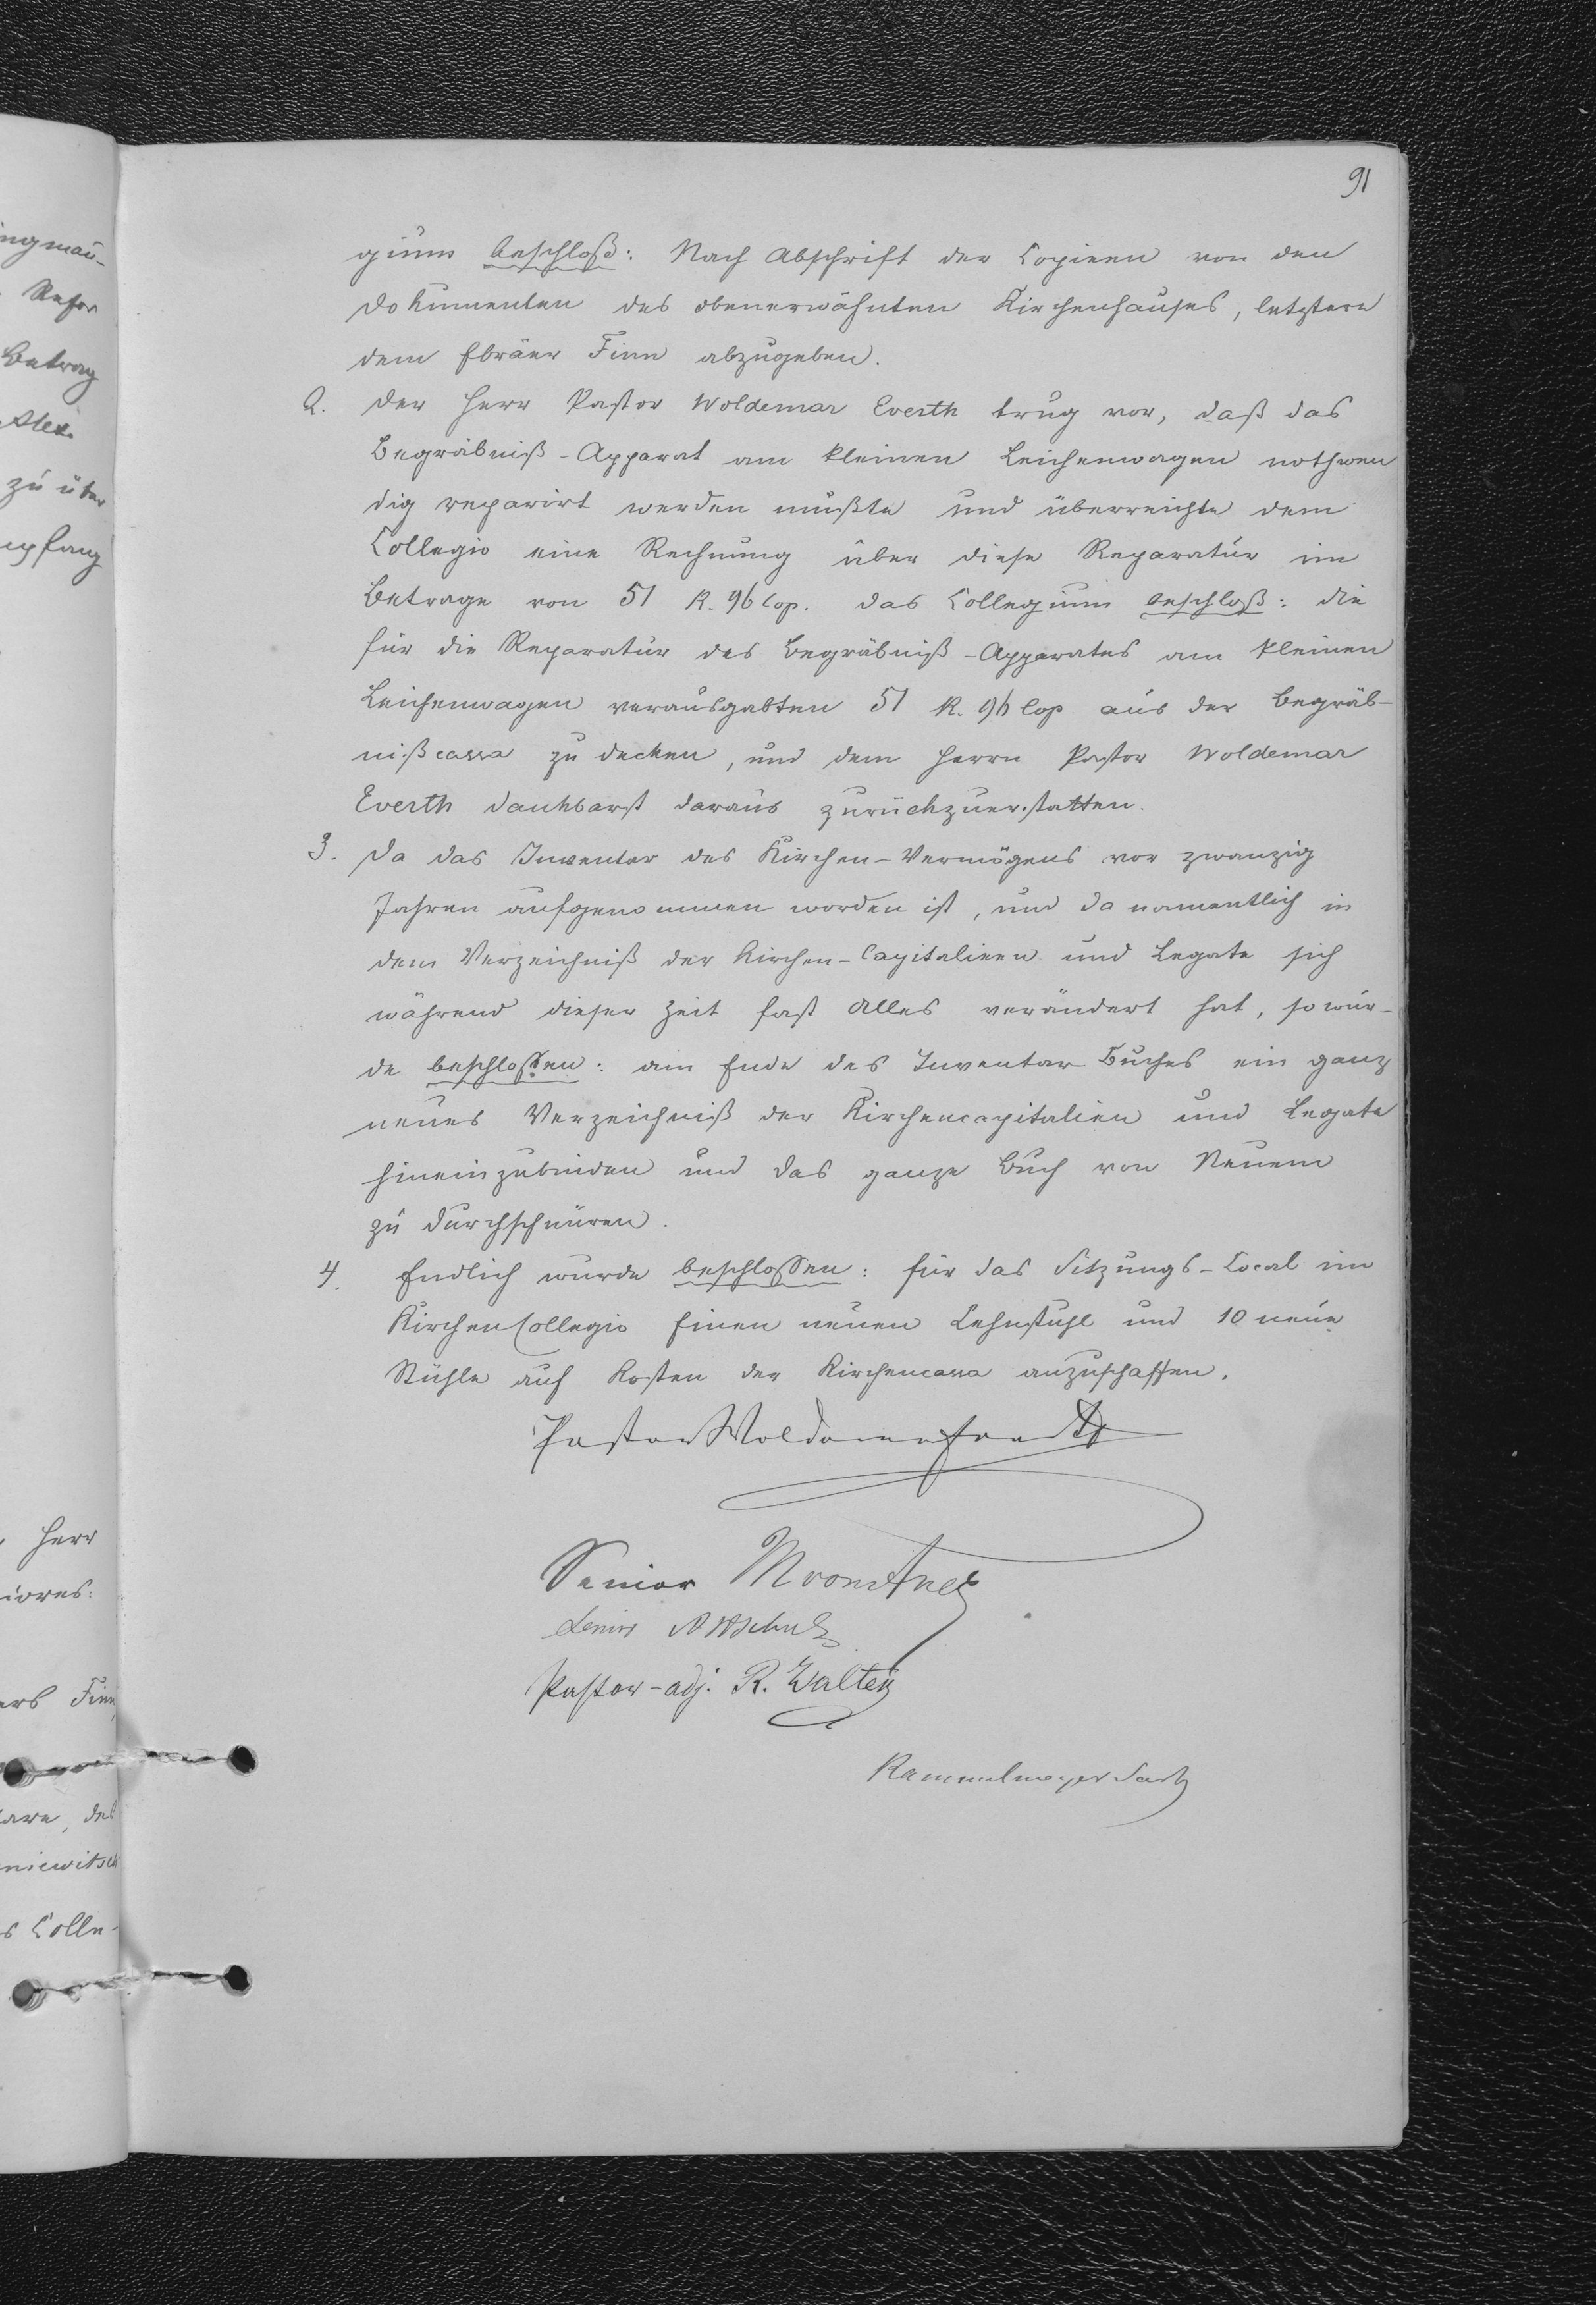 91
gium beschloß: Nach Abschrift der Copieen von den
Dokumenten des obenerwähnten Kirchenhauses, letztere
dem Ebräer Finn abzugeben.
2. Der Herr Pastor Woldemar Everth trug vor, daß das
Begräbniß-Apparat am kleinen Leichenwagen nothwen
dig reparirt werden mußte und überreichte dem
Collegio eine Rechnung über diese Reparatur im
Betrage von 51 R. 96 Cop. Das Collegium beschloß: die
für die Reparatur des Begräbniß-Apparates am kleinen
Leichenwagen verausgabten 51 R. 96 Cop aus der Begräb-
nißcassa zu decken, und dem Herrn Pastor Woldemar
Everth dankbarst daraus zurückzuerstatten.
3. Da das Inventar des Kirchen-Vermögens vor zwanzig
Jahren aufgenommen worden ist, und da namentlich in
dem Verzeichniß der Kirchen-Capitalieen und Legate sich
während dieser Zeit fast Alles verändert hat, so wur-
de beschlossen: am Ende des Inventar-Buches ein ganz
neues Verzeichniß der Kirchencapitalien und Legate
hineinzubinden und das ganze Buch von Neuem
zu durchschnüren.
4. Endlich wurde beschlossen: für das Sitzungs-Local im
KirchenCollegio Einen neuen Lehnstuhl und 10 neue
Stühle auf Kosten der Kirchencassa anzuschaffen.
Pastor Woldemar Everth
Senior
Senior
Pastor-adj. R. Walter
Rammelmeyer
ingmau-
Betrag
Alex.
zu über
mpfang
Herr
iores:
Finn
des
niewitsch
s Colle-